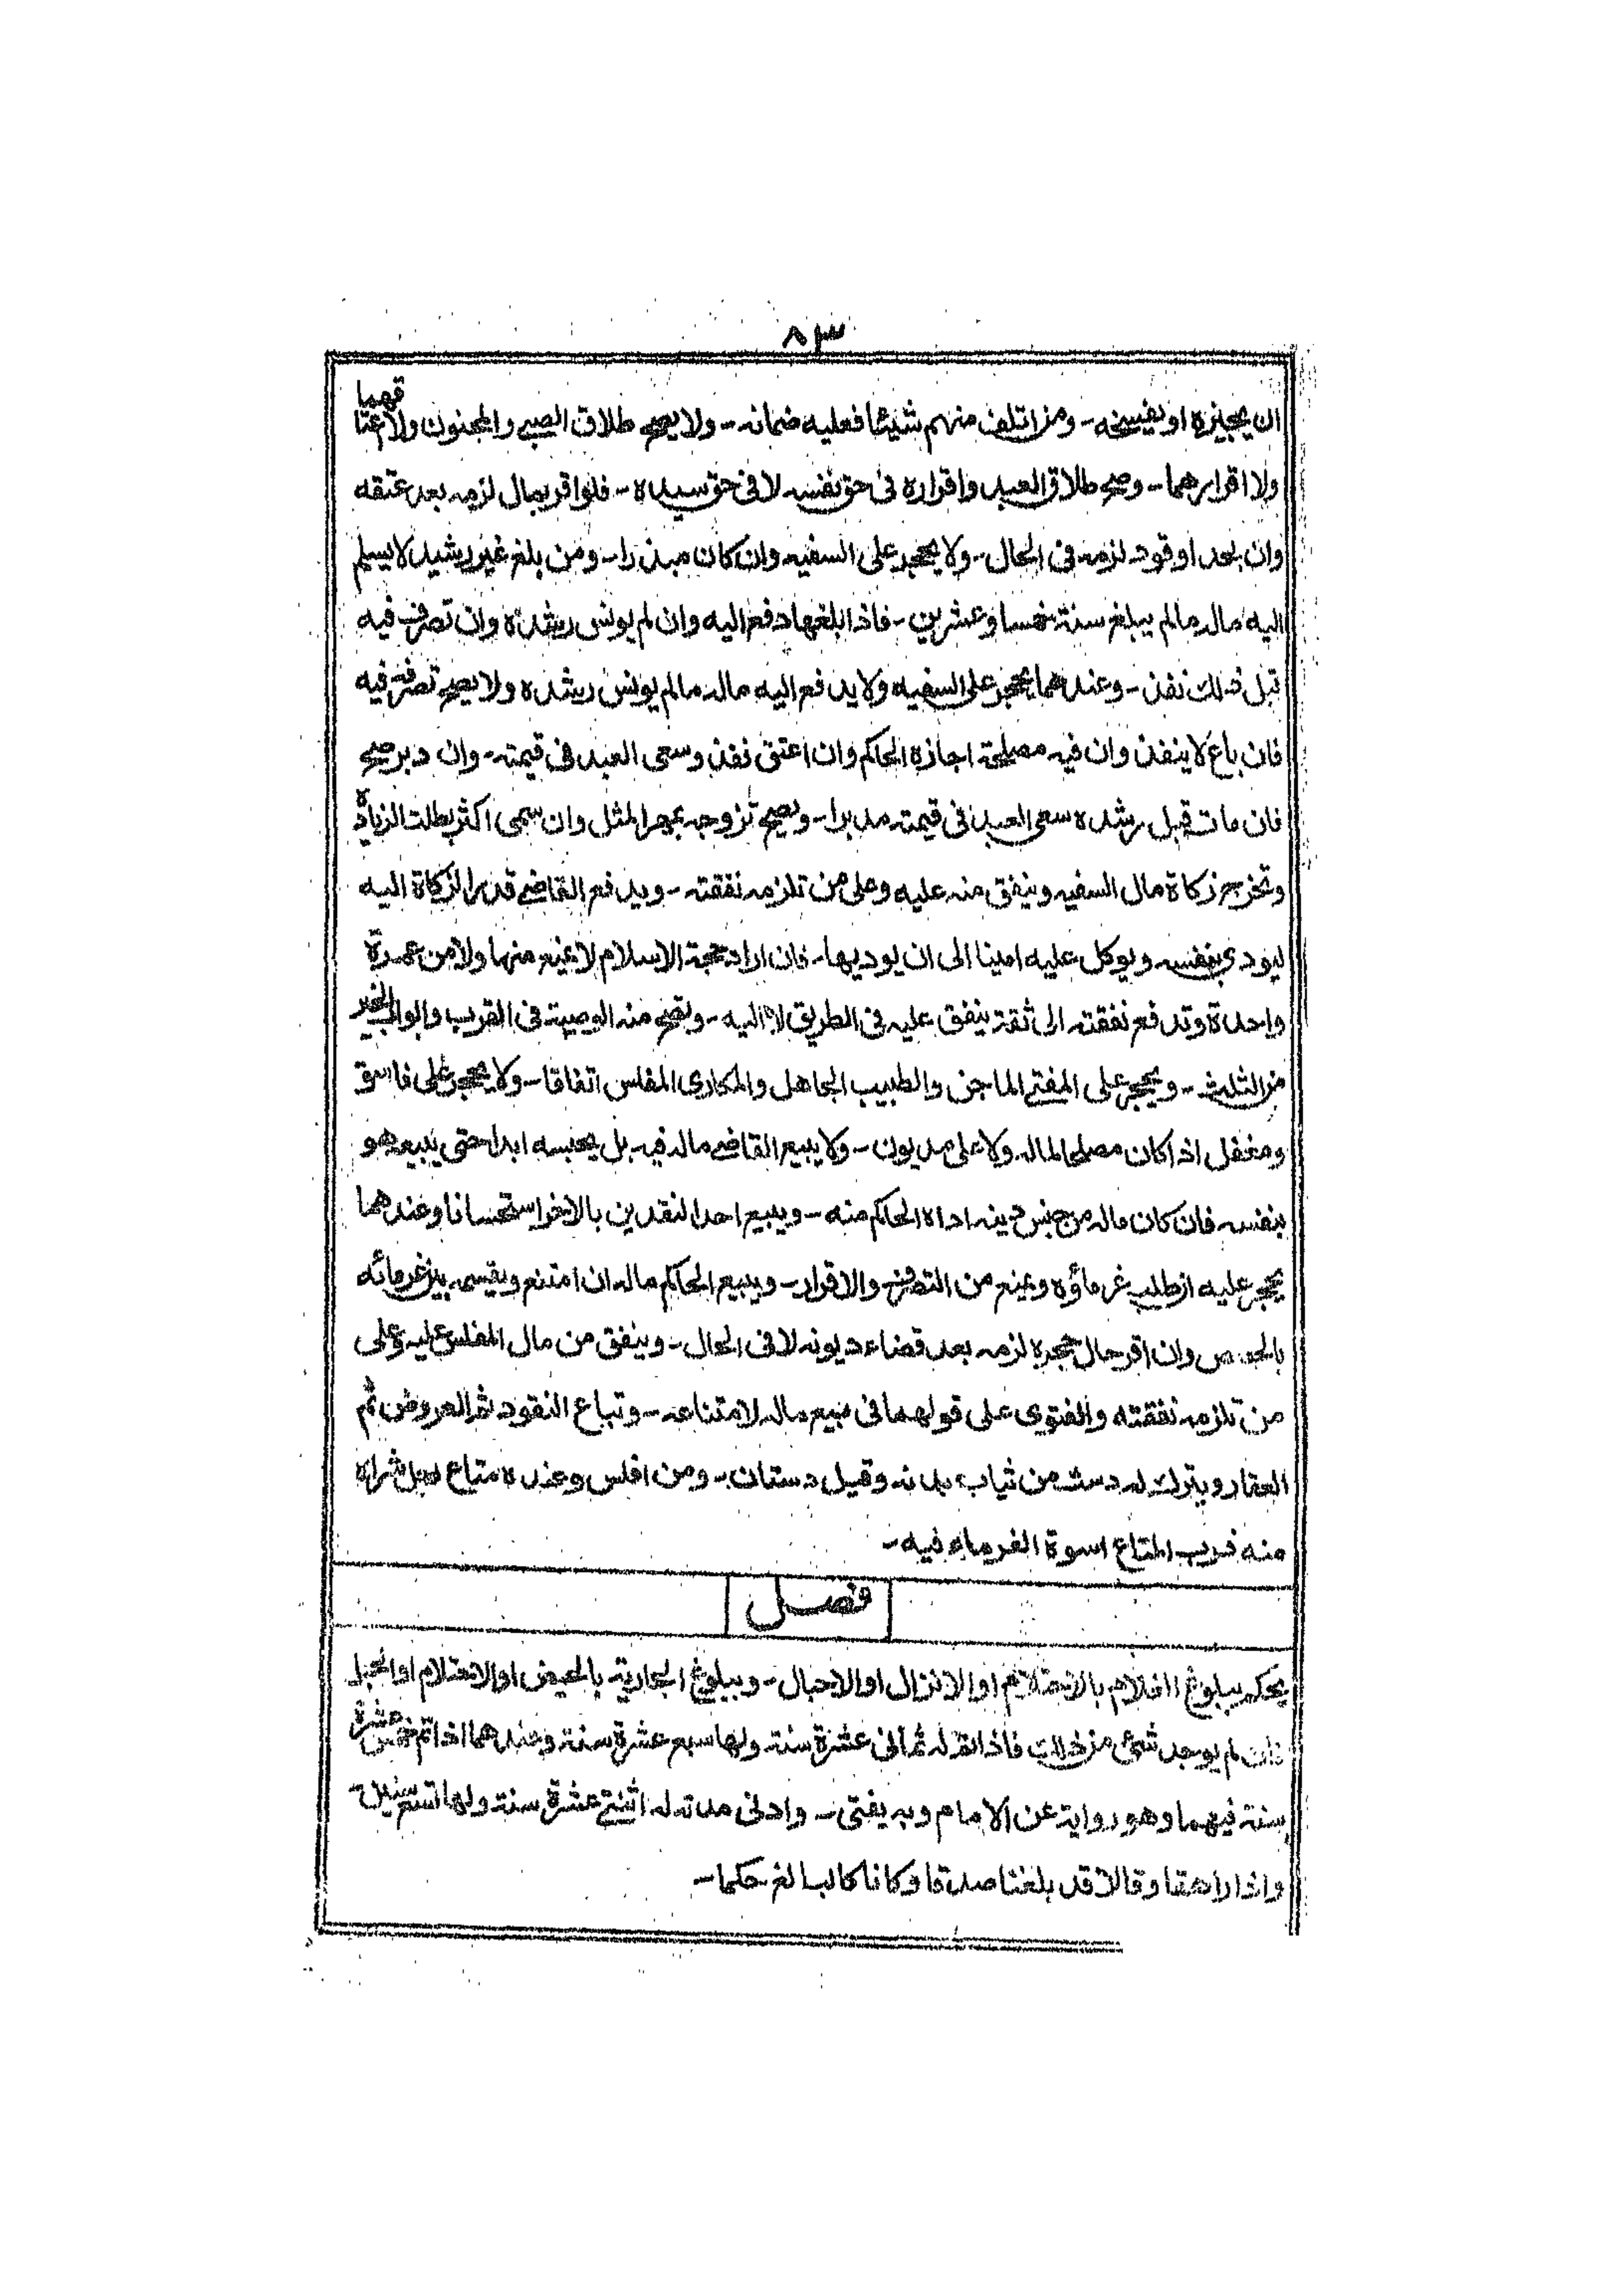 ٨٣
ان يجيزه او يفسخه ـ ومن اتلف منهم شيئا فعليه ضمانه ـ ولا يصح طلاق الصبي والمجنون ولا عتاقهما
ولا اقرارهما ـ وصح طلاق العبد واقراره فى حق نفسه لا فى حق سيده ـ فلو اقر بمال لزمه بعد عتقه
وان بحد او قود لزمه فى الحال ـ ولا يحجر على السفيه وان كان مبذرا ـ ومن بلغ غير رشيد لا يسلم
اليه ماله مالم يبلغ سنة خمسا وعشرين ـ فاذا بلغها دفع اليه وان لم يونس رشده وان تصرف فيه
قبل ذلك نفذ ـ وعندهما يحجر على السفيه ولا يدفع اليه ماله مالم يونس رشده ولا يصح تصرفه فيه
فان باع لا ينفذ وان فيه مصلحة اجازه الحاكم وان اعتق نفذ وسعى العبد فى قيمته ـ وان دبر صح
فان مات قبل رشده سعى العبد فى قيمته مدبرا ـ ويصح تزوجه بمهر المثل وان سمى اكثر بطلت الزيادة
وتخرج زكاة مال السفيه وينفق منه عليه وعلى من تلزمه نفقته ـ ويدفع القاضي قدر الزكاة اليه
ليودى بنفسه ويوكل عليه امينا الى ان يوديها ـ فان اراد حجة الاسلام لا يمنع منها ولا من عمرة
واحدة وتدفع نفقته الى ثقة ينفق عليه فى الطريق لا اليه ـ وتصح منه الوصية فى القرب وابواب الخير
من الثلث ـ ويحجر على المفتي الماجن والطبيب الجاهل والمكارى المفلس اتفاقا ـ ولا يحجر على فاسق
ومغفل اذا كان مصلحا لماله ولا على مديون ـ ولا يبيع القاضي ماله فيه بل يحبسه ابدا حتى يبيعه هو
بنفسه فان كان ماله من جنس دينه اداه الحاكم منه ـ ويبيع احد النقدين بالاخر استحسانا وعندهما
يحجر عليه ان طلب غرماؤه ويمنع من التصرف والاقرار ـ ويبيع الحاكم ماله ان امتنع ويقسمه بين غرمائه
بالحصص وان اقر حال حجره لزمه بعد قضاء ديونه لا فى الحال ـ وينفق من مال المفلس عليه وعلى
من تلزمه نفقته والفتوى على قولهما فى مبيع ماله لامتناعه ـ وتباع النقود ثم العروض ثم
العقار ويترك له دست من ثياب بدنه وقيل دستان ـ ومن افلس وعنده متاع رجل شراه
منه فرب المتاع اسوة الغرماء فيه ـ
فصل
يحكم ببلوغ الغلام بالاحتلام او الانزال او الاحبال ـ وببلوغ الجارية بالحيض او الاحتلام او الحبل
فان لم يوجد شئ من ذلك فاذا تم له ثمانى عشرة سنة ولها سبع عشرة سنة وعندهما اذا تم خمس عشرة
سنة فيهما وهو رواية عن الامام وبه يفتى ـ وادنى مدته له اثنتي عشرة سنة ولها تسع سنين ـ
واذا راهقا وقالا قد بلغنا صدقا وكانا كالبالغ حكما ـ